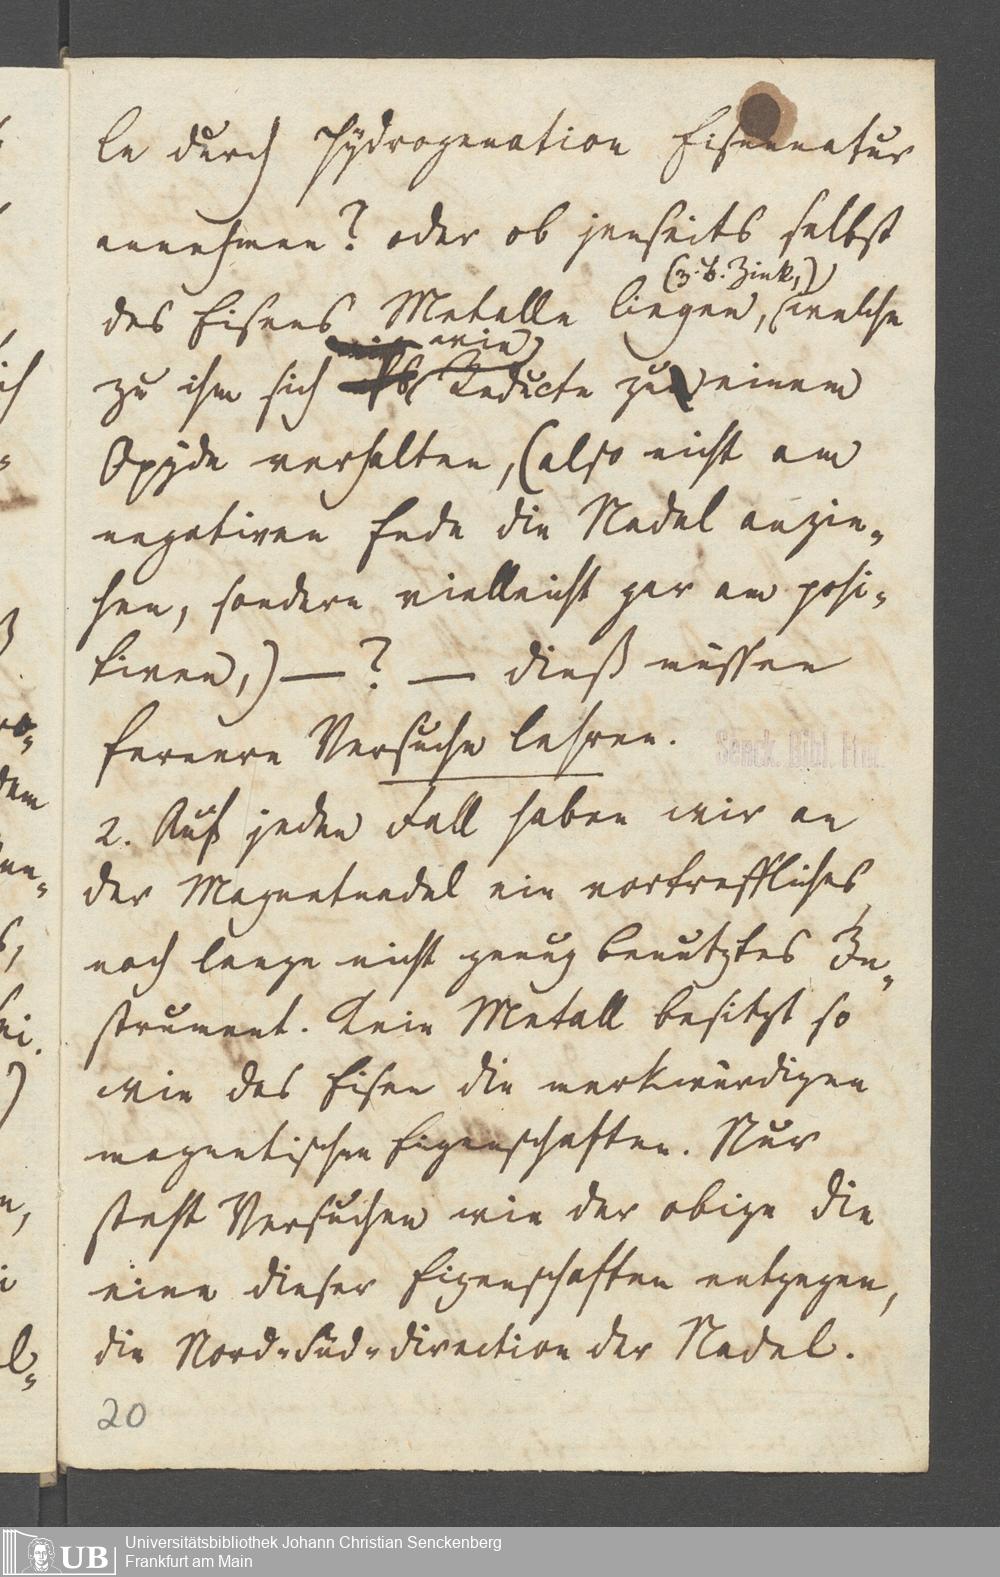 le durch Hydrogenation Eisennatur
annehmen? oder ob jenseits selbst
(z. b. Zink,)
des Eisens Metalle liegen, (welche
wie
zu ihm sich Reducte zu einem
Oxyde verhalten, (also nicht am
negativen Ende die Nadel anzie-
hen, sondern vielleicht gar am posi-
tiven,) — ? — dieß müssen
fernere Versuche lehren.
2. Auf jeden Fall haben wir an
der Magnetnadel ein vortreffliches,
noch lange nicht genug benutztes In-
strument. Kein Metall besitzt so
wie das Eisen die merkwürdigen
magnetischen Eigenschaften. Nur
steht Versuchen wie der obige die
eine dieser Eigenschaften entgegen,
die Nord-Süd-direction der Nadel.
20
Senck. Bibl. Ffm.
UB
Universitätsbibliothek Johann Christian Senckenberg
Frankfurt am Main